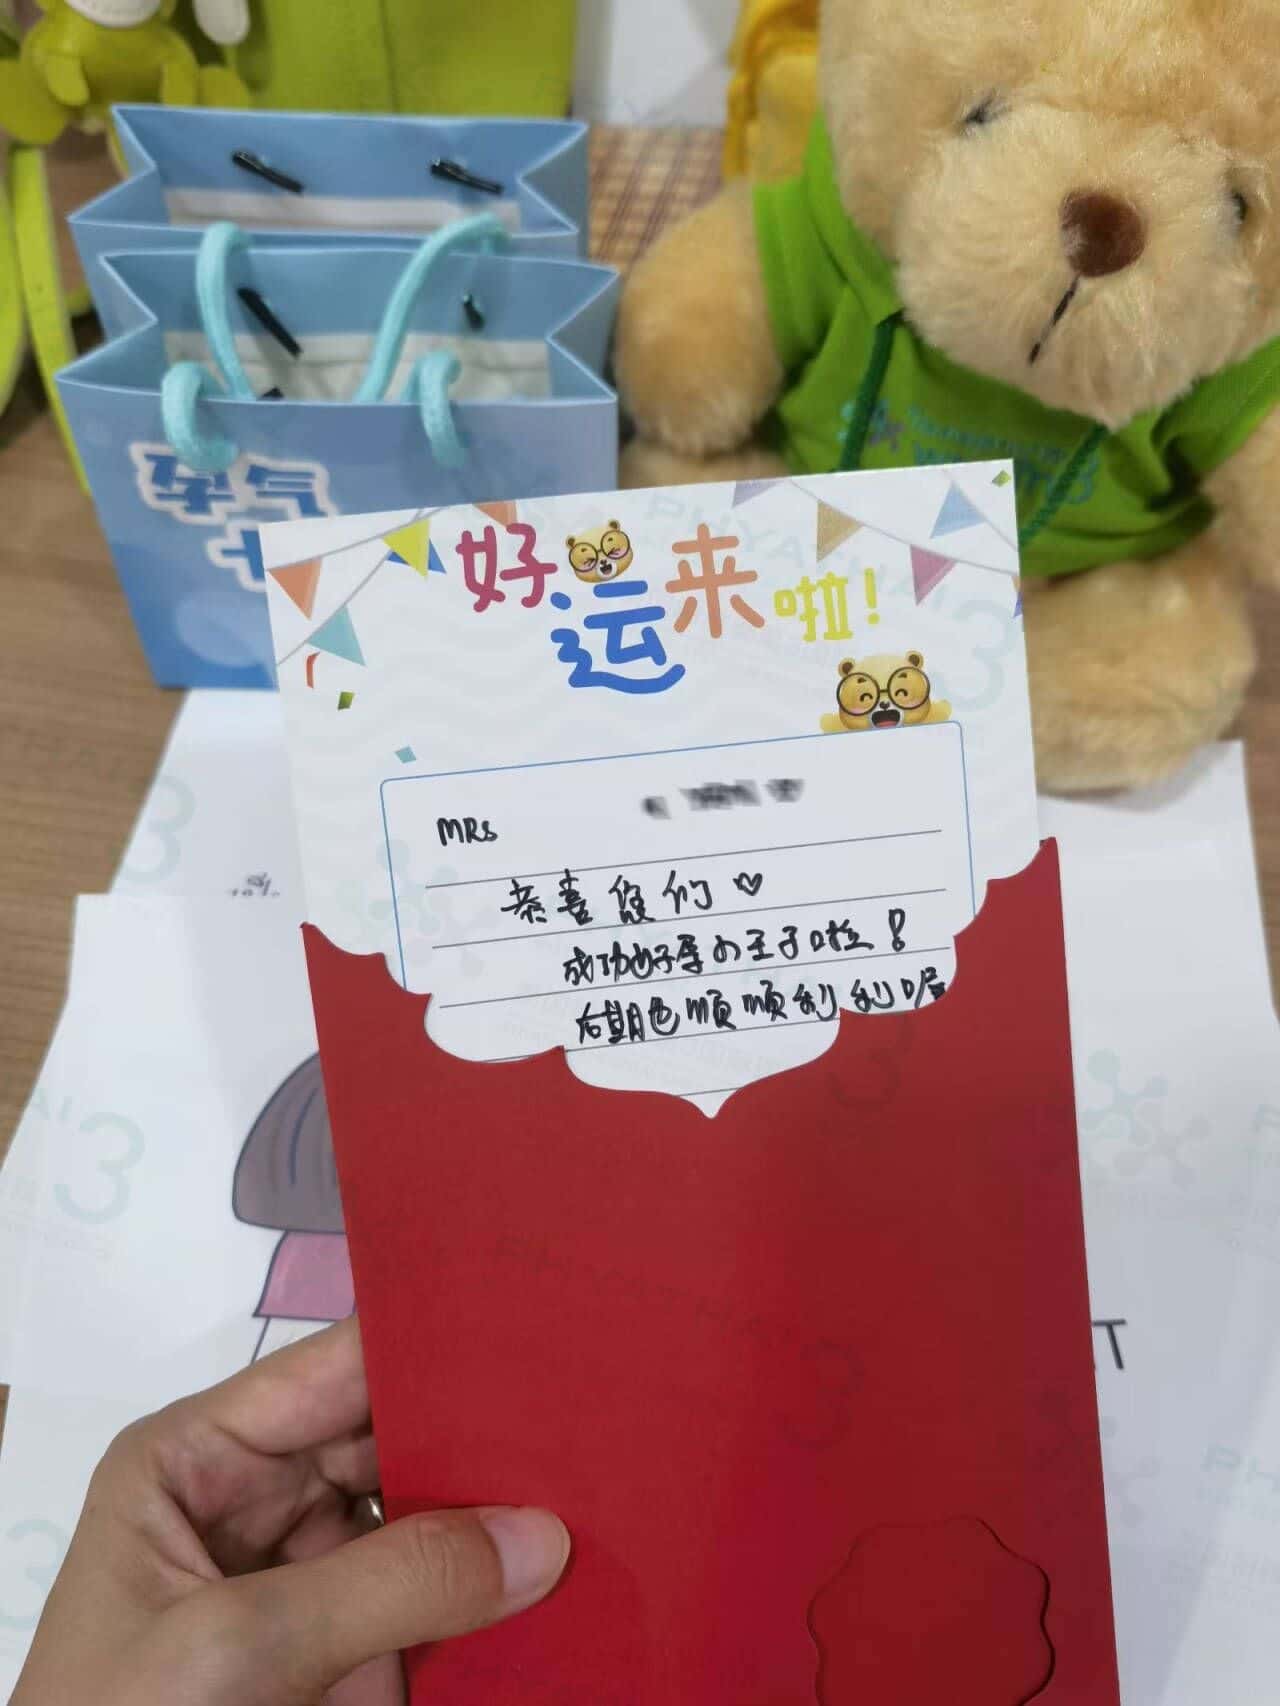 孕气
好运来啦！
MRS
恭喜您们♡
成功好孕小王子啦！
后期也顺顺利利喔
T